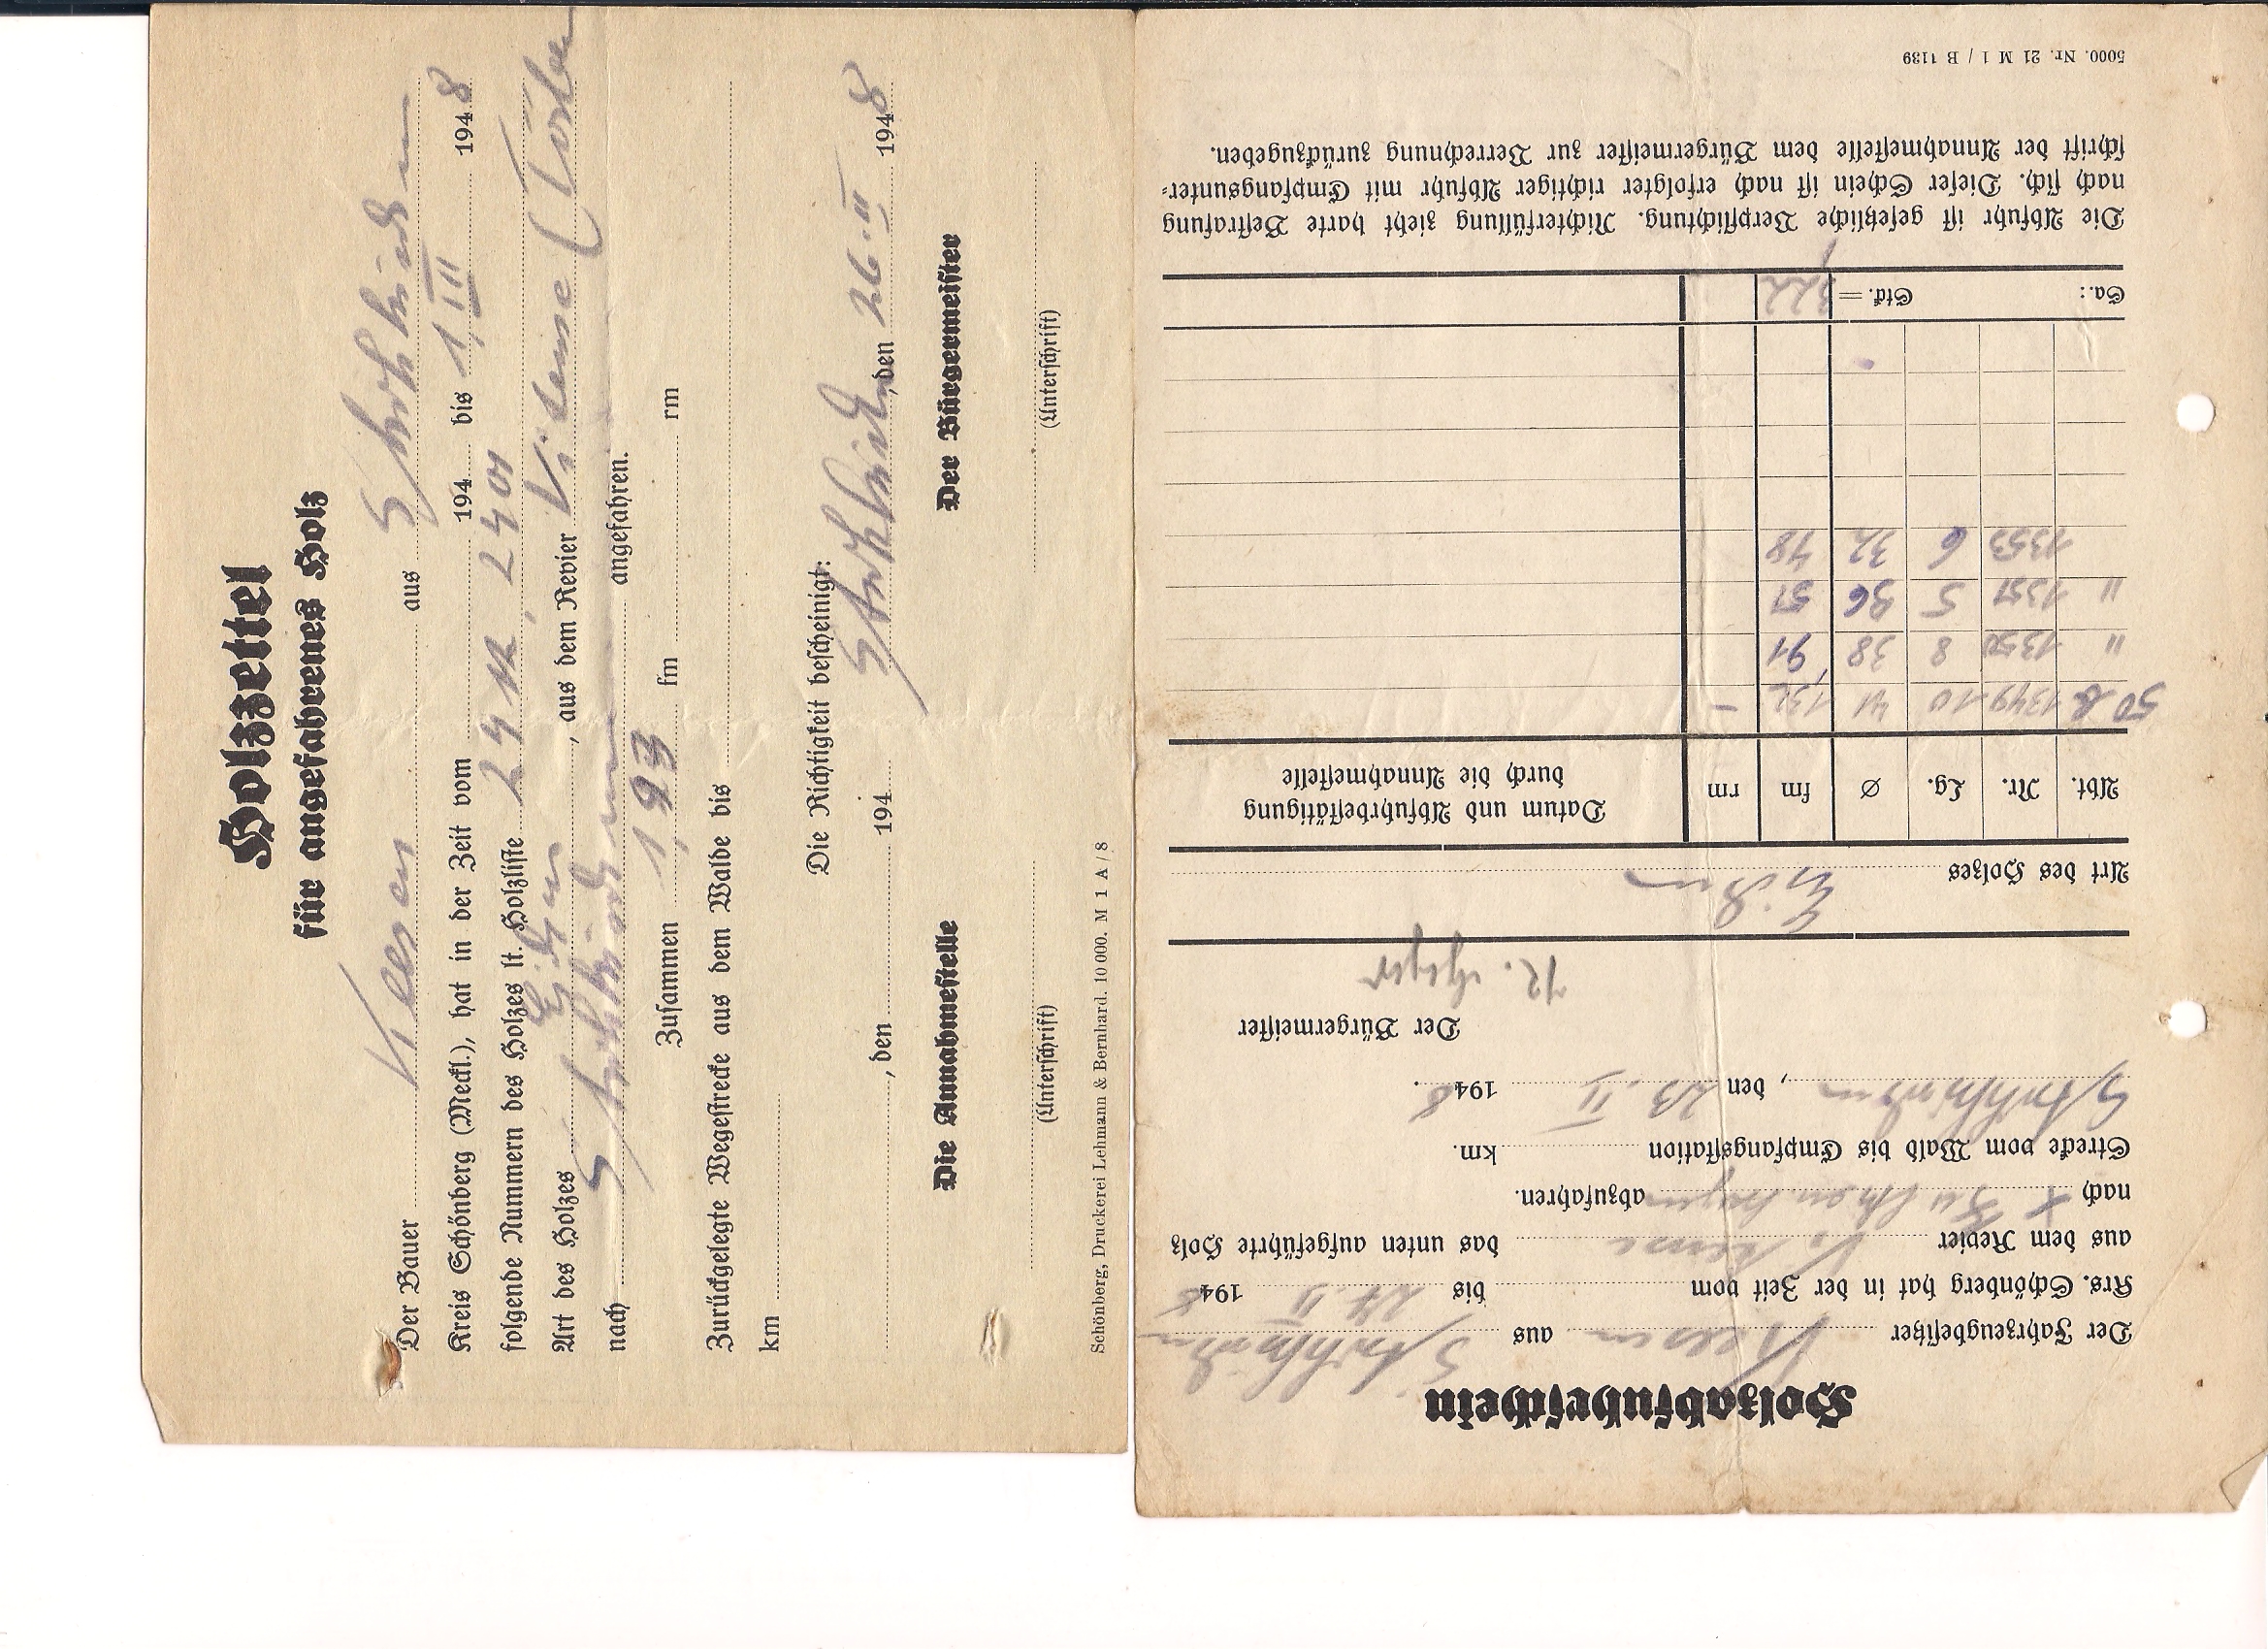 Holzzettel
für angefahrenes Holz
Der Bauer aus
Kreis Schönberg (Meckl.), hat in der Zeit vom 194 bis 1.III 1948
folgende Nummern des Holzes lt. Holzliste
Art des Holzes Eichen, aus dem Revier Vitense
nach angefahren.
Zusammen 1,93 fm rm
Zurückgelegte Wegestrecke aus dem Walde bis
km
Die Richtigkeit bescheinigt:
, den 194 , den 26.II 1948
Die Annahmestelle Der Bürgermeister
(Unterschrift) (Unterschrift)
Schönberg, Druckerei Lehmann & Bernhard. 10 000. M 1 A / 8
Holzabfuhrschein
Der Fahrzeugbesitzer aus
Krs. Schönberg hat in der Zeit vom bis 27.II 1948
aus dem Revier Vitense das unten aufgeführte Holz
nach abzufahren.
Strecke vom Wald bis Empfangsstation km.
, den 23.II 1948.
Der Bürgermeister
Art des Holzes Eichen
Abt. Nr. Lg. Ø fm rm Datum und Abfuhrbestätigung
durch die Annahmestelle
1349 10 41 1,32 –
" 1350 8 38 91
" 1351 5 36 51
1353 6 32 48
Sa.: Stck. = 3,22
Die Abfuhr ist gesetzliche Verpflichtung. Nichterfüllung zieht harte Bestrafung
nach sich. Dieser Schein ist nach erfolgter richtiger Abfuhr mit Empfangsunter-
schrift der Annahmestelle dem Bürgermeister zur Verrechnung zurückzugeben.
5000. Nr. 21 M 1 / B 1139